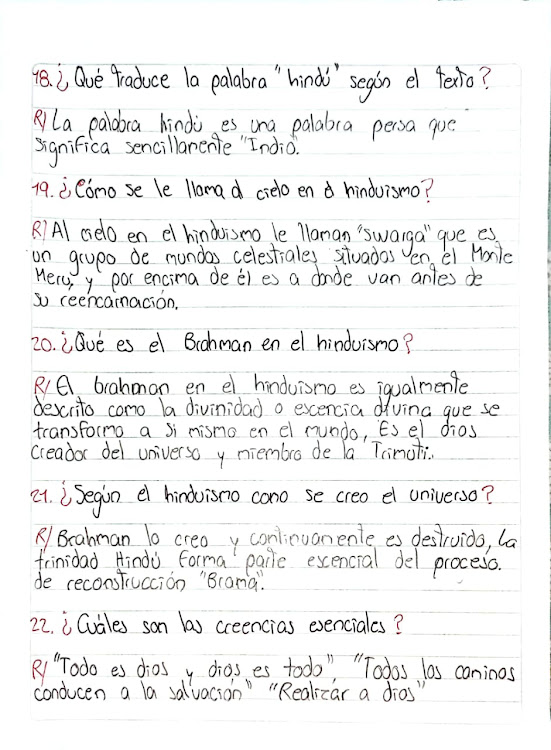 18. ¿Qué traduce la palabra "hindú" según el texto?
R/ La palabra hindú es una palabra persa que
significa sencillamente "Indio.
19. ¿Cómo se le llama al cielo en el hinduismo?
R/ Al cielo en el hinduismo le llaman "swarga" que es
un grupo de mundos celestiales situados en el Monte
Meru, y por encima de él es a donde van antes de
su reencarnación.
20. ¿Qué es el Brahman en el hinduismo?
R/ El brahman en el hinduismo es igualmente
descrito como la divinidad o escencia divina que se
transformo a si mismo en el mundo, Es el dios
creador del universo y miembro de la Trimuti.
21. ¿Según el hinduismo como se creo el universo?
R/ Brahman lo creo y continuamente es destruido, la
trinidad Hindú forma parte escencial del proceso.
de reconstrucción "Brama".
22. ¿Cuáles son las creencias esenciales?
R/ "Todo es dios y dios es todo", "Todos los caminos
conducen a la salvación" "Realizar a dios"